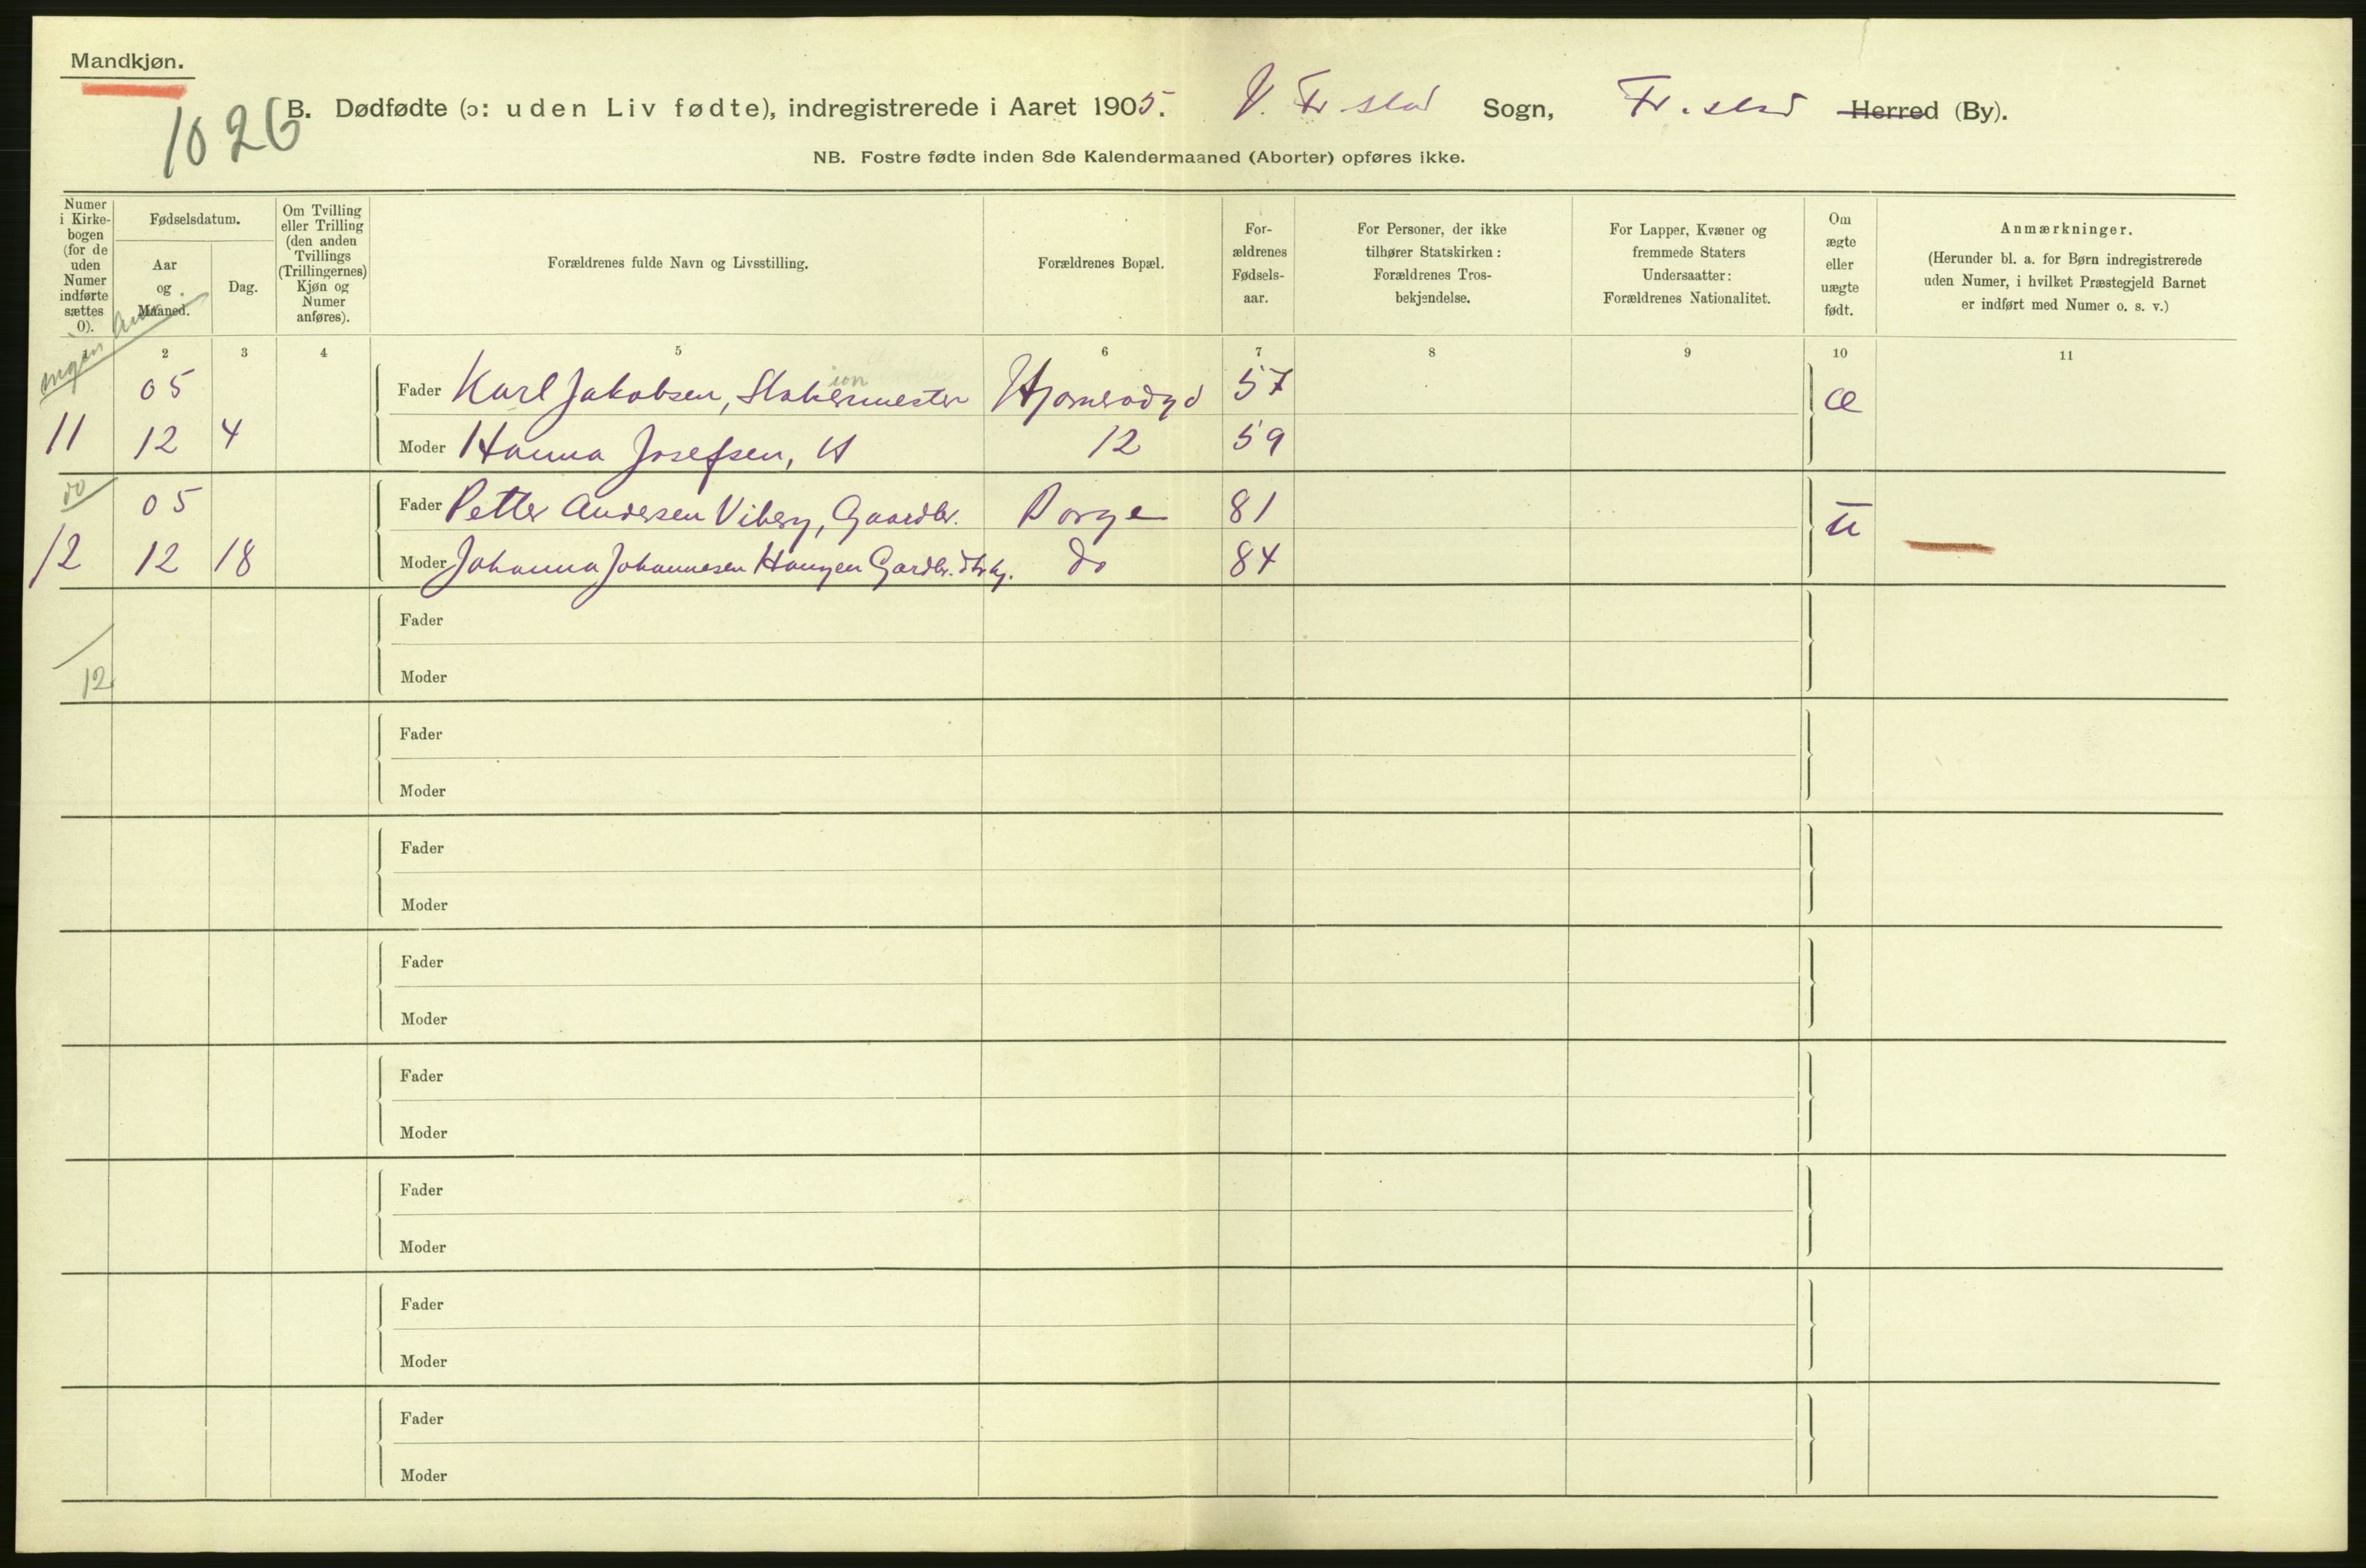 Mandkjøn.
1026
B. Dødfødte (ɔ: uden Liv fødte), indregistrerede i Aaret 1905. V. Fr.stad Sogn, Fr.stad Herred (By).
NB. Fostre fødte inden 8de Kalendermaaned (Aborter) opføres ikke.
Numer i Kirkebogen (for de uden Numer indførte sættes 0).
Fødselsdatum.
Aar og Maaned.
Dag.
Om Tvilling eller Trilling (den anden Tvillings (Trillingernes) Kjøn og Numer anføres).
Forældrenes fulde Navn og Livsstilling.
Forældrenes Bopæl.
Forældrenes Fødselsaar.
For Personer, der ikke tilhører Statskirken: Forældrenes Trosbekjendelse.
For Lapper, Kvæner og fremmede Staters Undersaatter: Forældrenes Nationalitet.
Om ægte eller uægte født.
Anmærkninger.
(Herunder bl. a. for Børn indregistrerede uden Numer, i hvilket Præstegjeld Barnet er indført med Numer o. s. v.)
2 3 4 5 6 7 8 9 10 11
ingen
05 Fader Karl Jakobsen, 57 Æ
11 12 4 Moder Hanna Josefsen, H 12 59
do
05 Fader Petter Andersen Viberg, Gaardbr. Borge 81 U
12 12 18 Moder Johanna Johannesen Haugen Gardbr. do 84
Fader
12
Moder
Fader
Moder
Fader
Moder
Fader
Moder
Fader
Moder
Fader
Moder
Fader
Moder
Fader
Moder